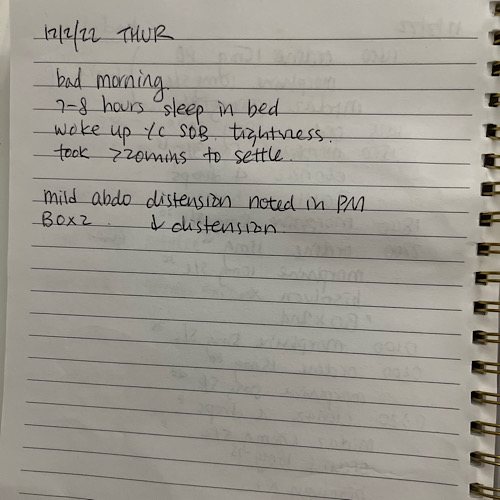 12/2/22 THUR
bad morning.
7-8 hours sleep in bed
woke up /c SOB. tightness.
took >20mins to settle.
mild abdo distension noted in PM
BOx2. ↓ distension.